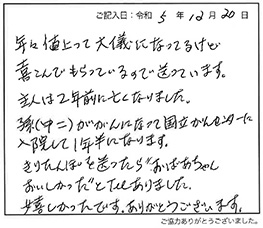 ご記入日：令和 5 年 12 月 20 日
年々値上って大儀になってるけど
喜こんでもらっているので送っています。
主人は2年前に亡くなりました。
孫(中二)ががんになって国立がんセンターに
入院して1年半になります。
きりたんぽを送ったら"おばあちゃん
おいしかった"とTELありました。
嬉しかったです。ありがとうございます。
ご協力ありがとうございました。